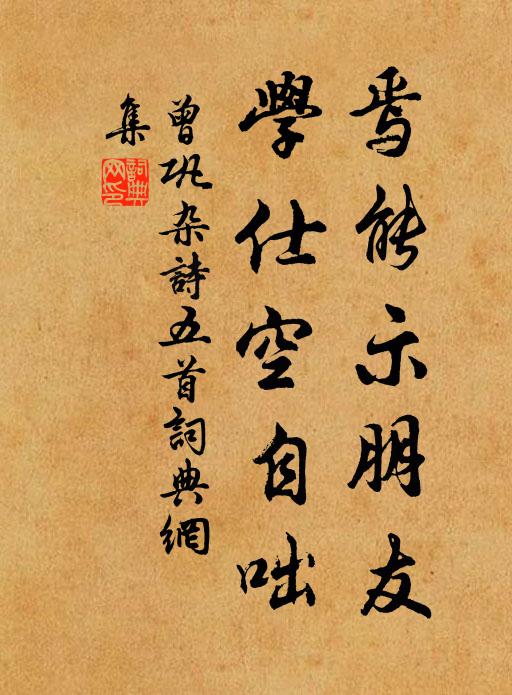 焉能示朋友
學仕空自咄
曾巩杂詩五首詞典網
集
詞典
网印